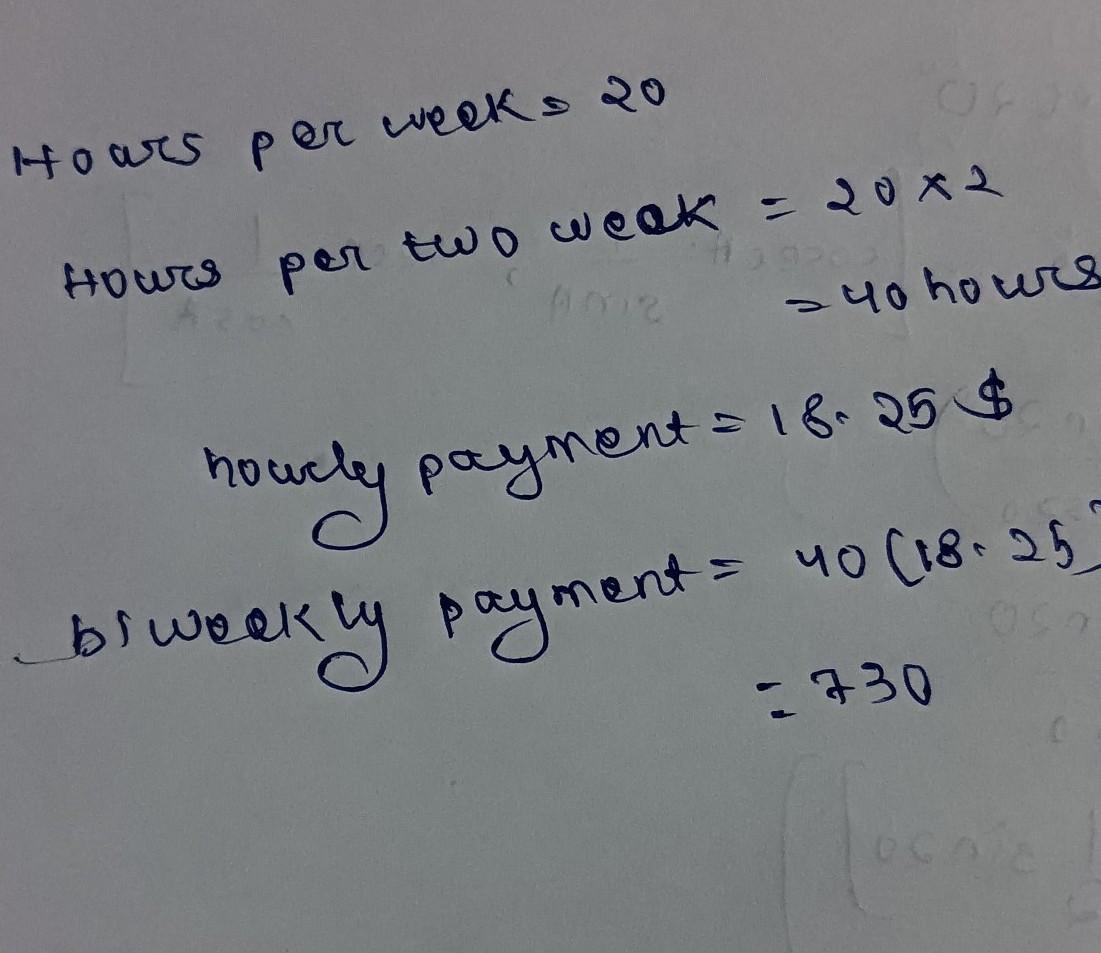 Hours per week = 20
Hours per two week = 20 × 2
= 40 hours
hourly payment = 18.25 $
biweekly payment = 40 (18.25)
= 730